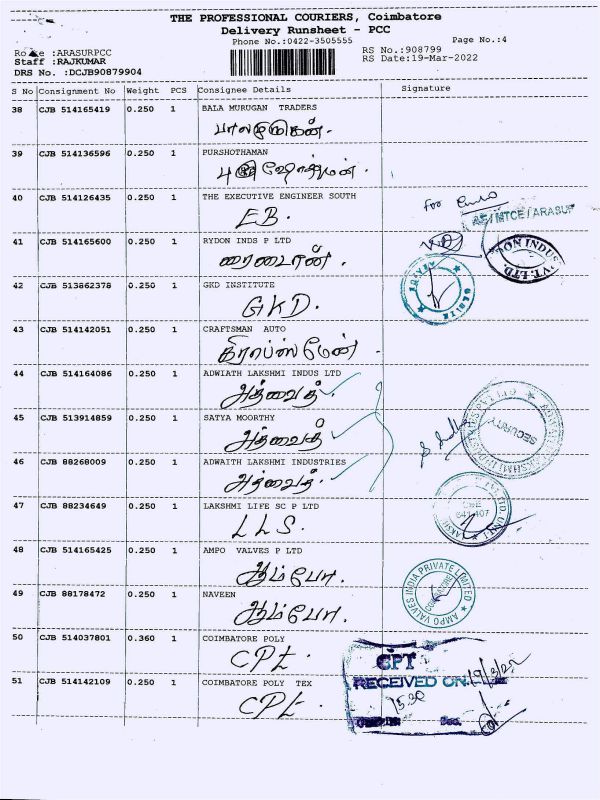 THE PROFESSIONAL COURIERS, Coimbatore
Delivery Runsheet - PCC
Phone No.:0422-3505555
Page No.:4
:ARASURPCC
Staff :RAJKUMAR
DRS No. :DCJB90879904
RS No.:908799
RS Date:19-Mar-2022
S No Consignment No Weight PCS Consignee Details Signature
38 CJB 514165419 0.250 1 BALA MURUGAN TRADERS
பாலமுருகன்.
39 CJB 514136596 0.250 1 PURSHOTHAMAN
40 CJB 514126435 0.250 1 THE EXECUTIVE ENGINEER SOUTH
EB.
For
AE/MTCE/ARASUR
41 CJB 514165600 0.250 1 RYDON INDS P LTD
ரைடான்.
42 CJB 513862378 0.250 1 GKD INSTITUTE
GKD.
43 CJB 514142051 0.250 1 CRAFTSMAN AUTO
கிராப்ஸ்மேன்.
44 CJB 514164086 0.250 1 ADWIATH LAKSHMI INDUS LTD
அத்வைத்
45 CJB 513914859 0.250 1 SATYA MOORTHY
அத்வைத்
SECURITY
46 CJB 88268009 0.250 1 ADWAITH LAKSHMI INDUSTRIES
அத்வைத்.
47 CJB 88234649 0.250 1 LAKSHMI LIFE SC P LTD
LLS.
CBE
641 407
48 CJB 514165425 0.250 1 AMPO VALVES P LTD
ஆம்போ.
49 CJB 88178472 0.250 1 NAVEEN
ஆம்போ.
AMPO VALVES INDIA PRIVATE LIMITED
COIMBATORE
50 CJB 514037801 0.360 1 COIMBATORE POLY
CPT.
CPT
RECEIVED ON 19/3/22
15.30
51 CJB 514142109 0.250 1 COIMBATORE POLY TEX
CPT.